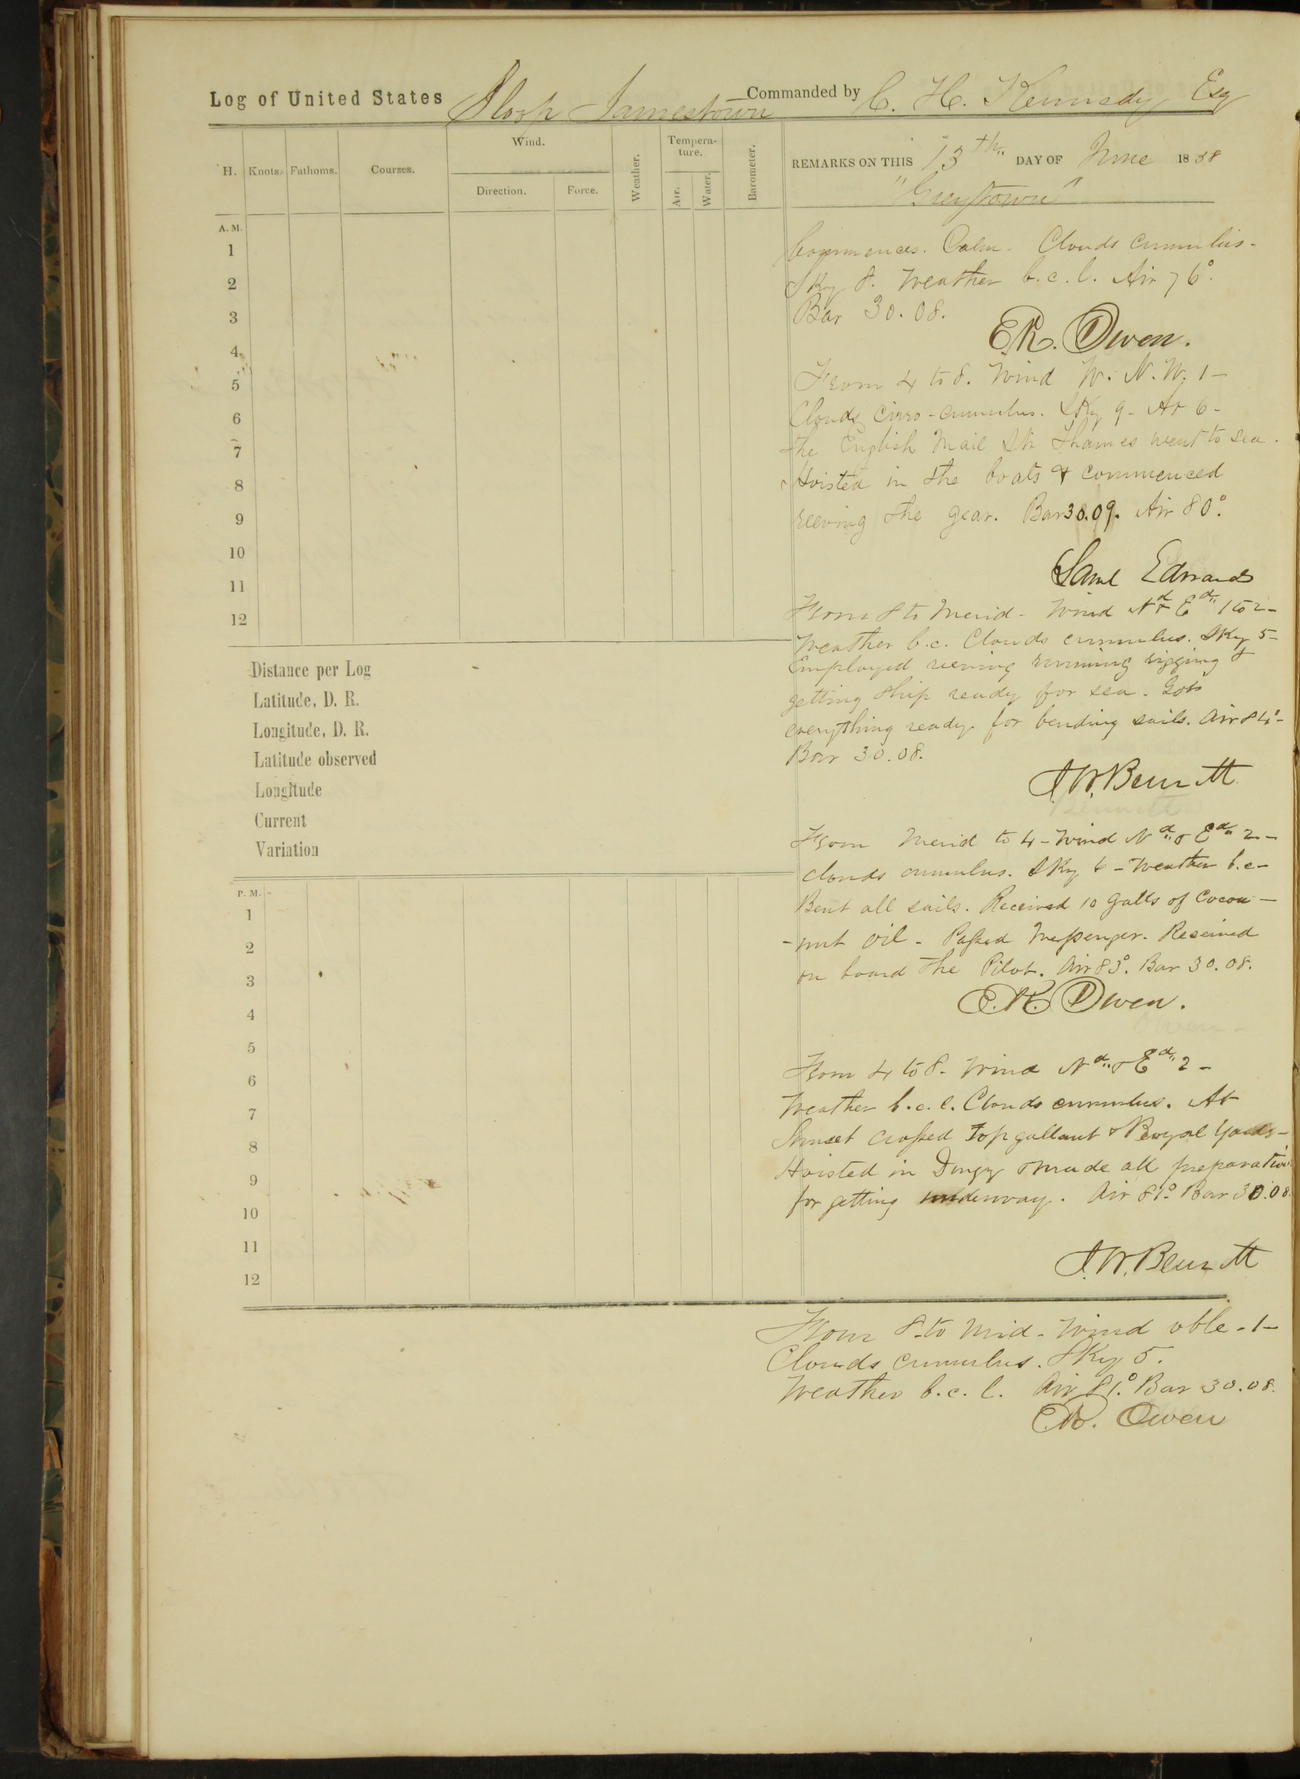 Log of United States Sloop Jamestown Commanded by C. H. Kennedy Esq
H. Knots. Fathoms. Courses. Wind. Direction. Force. Weather. Tempera-ture. Air. Water. Barometer.
REMARKS ON THIS 13th DAY OF June 1858
"Greytown"
A. M.
1
2
3
4
5
6
7
8
9
10
11
12
Commences. Calm. Clouds cumulus.
Sky 8. Weather b.c.l. Air 76°.
Bar 30.08.
E.R. Owen.
From 4 to 8. Wind W. N. W. 1 -
Clouds cirro-cumulus. Sky 9 - At 6 -
the English Mail Str Thames went to sea.
Hoisted in the boats & commenced
reeving the gear. Bar 30.09. Air 80°.
Saml Edwards
From 8 to Merid - Wind Nd & Ed 1 to 2 -
Weather b.c. Clouds cumulus. Sky 5 -
Employed reeving running rigging &
getting ship ready for sea. Got
everything ready for bending sails. Air 84° -
Bar 30.08.
J.W. Bennett
Distance per Log
Latitude, D. R.
Longitude, D. R.
Latitude observed
Longitude
Current
Variation
P. M.
1
2
3
4
5
6
7
8
9
10
11
12
From Merid to 4 - Wind Nd & Ed 2 -
clouds cumulus. Sky 6 - Weather b.c -
Bent all sails. Received 10 galls of Cocoa -
- nut oil - Passed Messenger. Received
on board the Pilot. Air 83°. Bar 30.08.
E.R. Owen.
From 4 to 8. Wind Nd & Ed 2 -
Weather b.c.l. Clouds cumulus. At
Sunset crossed Topgallant & Royal Yards -
Hoisted in Dingy & made all preparation
for getting underway. Air 81° Bar 30.08
J.W. Bennett
From 8 to Mid - Wind vble - 1 -
Clouds cumulus. Sky 5.
Weather b.c.l. Air 81.° Bar 30.08.
E.R. Owen